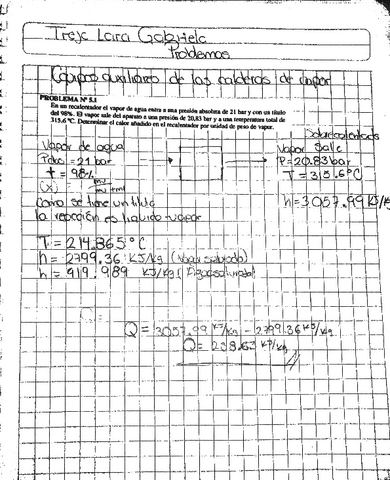 Trejo Lara Gabriela
Problemas
Equipos auxiliares de las calderas de vapor
PROBLEMA Nº 5.1
En un recalentador el vapor de agua entra a una presión absoluta de 21 bar y con un título
del 98%. El vapor sale del aparato a una presión de 20,83 bar y a una temperatura total de
315.6 ºC. Determinar el calor añadido en el recalentador por unidad de peso de vapor.
Sobrecalentado
Vapor de agua
Vapor Sale
Pabs = 21 bar
P = 20.83 bar
t = 98%
T = 315.6°C
(x) = mv
mv + ml
h = 3057.99 KJ/K
Como se tiene un titulo
la reacción es liquido-vapor
T = 214.865°C
h = 2799.36 KJ/Kg (Vapor saturado)
h = 919.989 KJ/Kg (Liq saturado)
Q = 3057.99 KJ/Kg - 2799.36 KJ/Kg
Q = 258.63 KJ/Kg